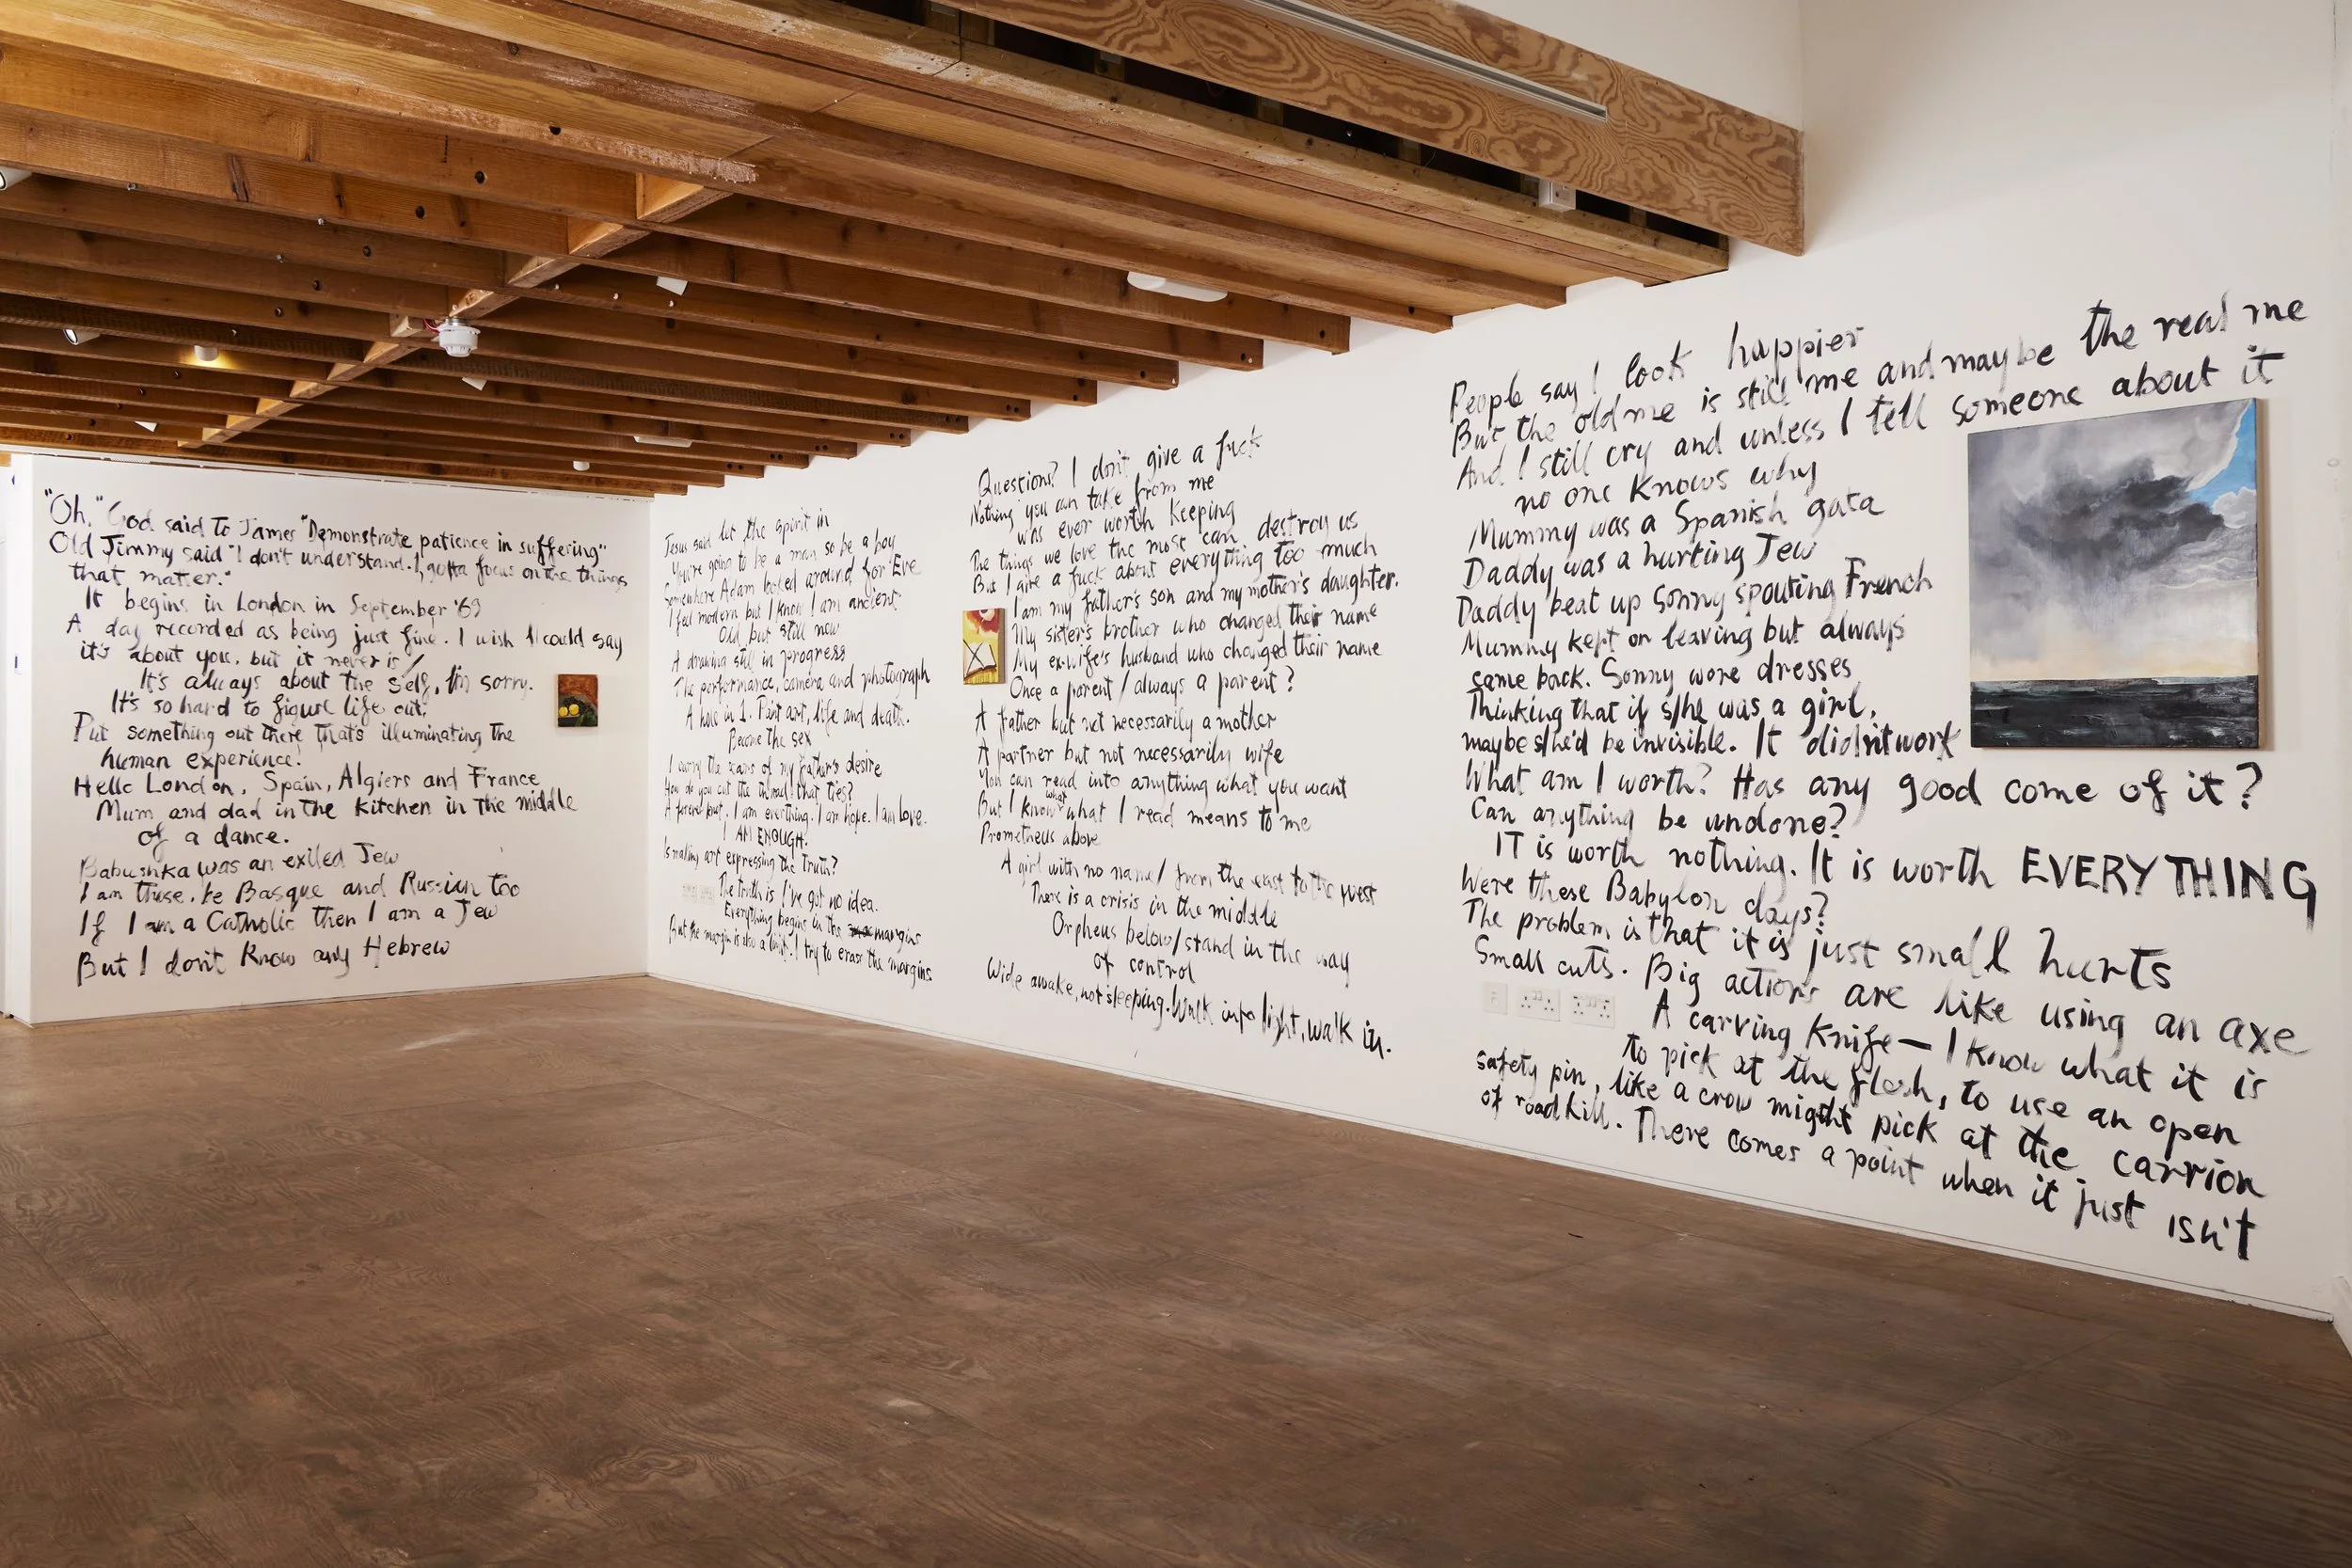 "Oh," God said to James "Demonstrate patience in suffering"
Old Jimmy said "I don't understand. I gotta focus on the things
that matter."
It begins in London in September '63
A day recorded as being just fine. I wish I could say
it's about you, but it never is/
It's always about the self, I'm sorry.
It's so hard to figure life out;
Put something out there that's illuminating the
human experience!
Hello London, Spain, Algiers and France
Mum and dad in the kitchen in the middle
of a dance.
Babushka was an exiled Jew
I am these, be Basque and Russian too
If I am a Catholic then I am a Jew
But I don't know any Hebrew
Jesus said let the spirit in
You're going to be a man so be a boy
Somewhere Adam looked around for Eve
I feel modern but I know I am ancient.
Old but still new
A drawing still in progress
The performance, camera and photograph
A hole in 1. Paint art, life and death.
Become the sex
I carry the scars of my father's desire
How do you cut the thread that ties?
A forever but. I am everything. I am hope. I am love.
I AM ENOUGH.
Is making art expressing the truth?
The truth is I've got no idea.
Everything begins in the margins
But the margin is also a limit. I try to erase the margins
Questions? I don't give a fuck
Nothing you can take from me
was ever worth keeping
The things we love the most can destroy us
But I give a fuck about everything too much
I am my father's son and my mother's daughter.
My sister's brother who changed their name
My ex-wife's husband who changed their name
Once a parent / always a parent?
A father but not necessarily a mother
A partner but not necessarily wife
You can read into anything what you want
But I know what what I read means to me
Prometheus above
A girl with no name/ from the east to the west
There is a crisis in the middle
Orpheus below/stand in the way
of control
Wide awake, not sleeping. Walk into light, walk in.
People say I look happier
But the old me is still me and maybe the real me
And I still cry and unless I tell someone about it
no one knows why
Mummy was a Spanish gata
Daddy was a hurting Jew
Daddy beat up Sonny spouting French
Mummy kept on leaving but always
came back. Sonny wore dresses
Thinking that if s/he was a girl,
maybe s/he'd be invisible. It didn't work
What am I worth? Has any good come of it?
Can anything be undone?
IT is worth nothing. It is worth EVERYTHING
Were these Babylon days?
The problem is that it is just small hurts
Small cuts. Big actions are like using an axe
A carving knife — I know what it is
to pick at the flesh, to use an open
safety pin, like a crow might pick at the carrion
of roadkill. There comes a point when it just isn't